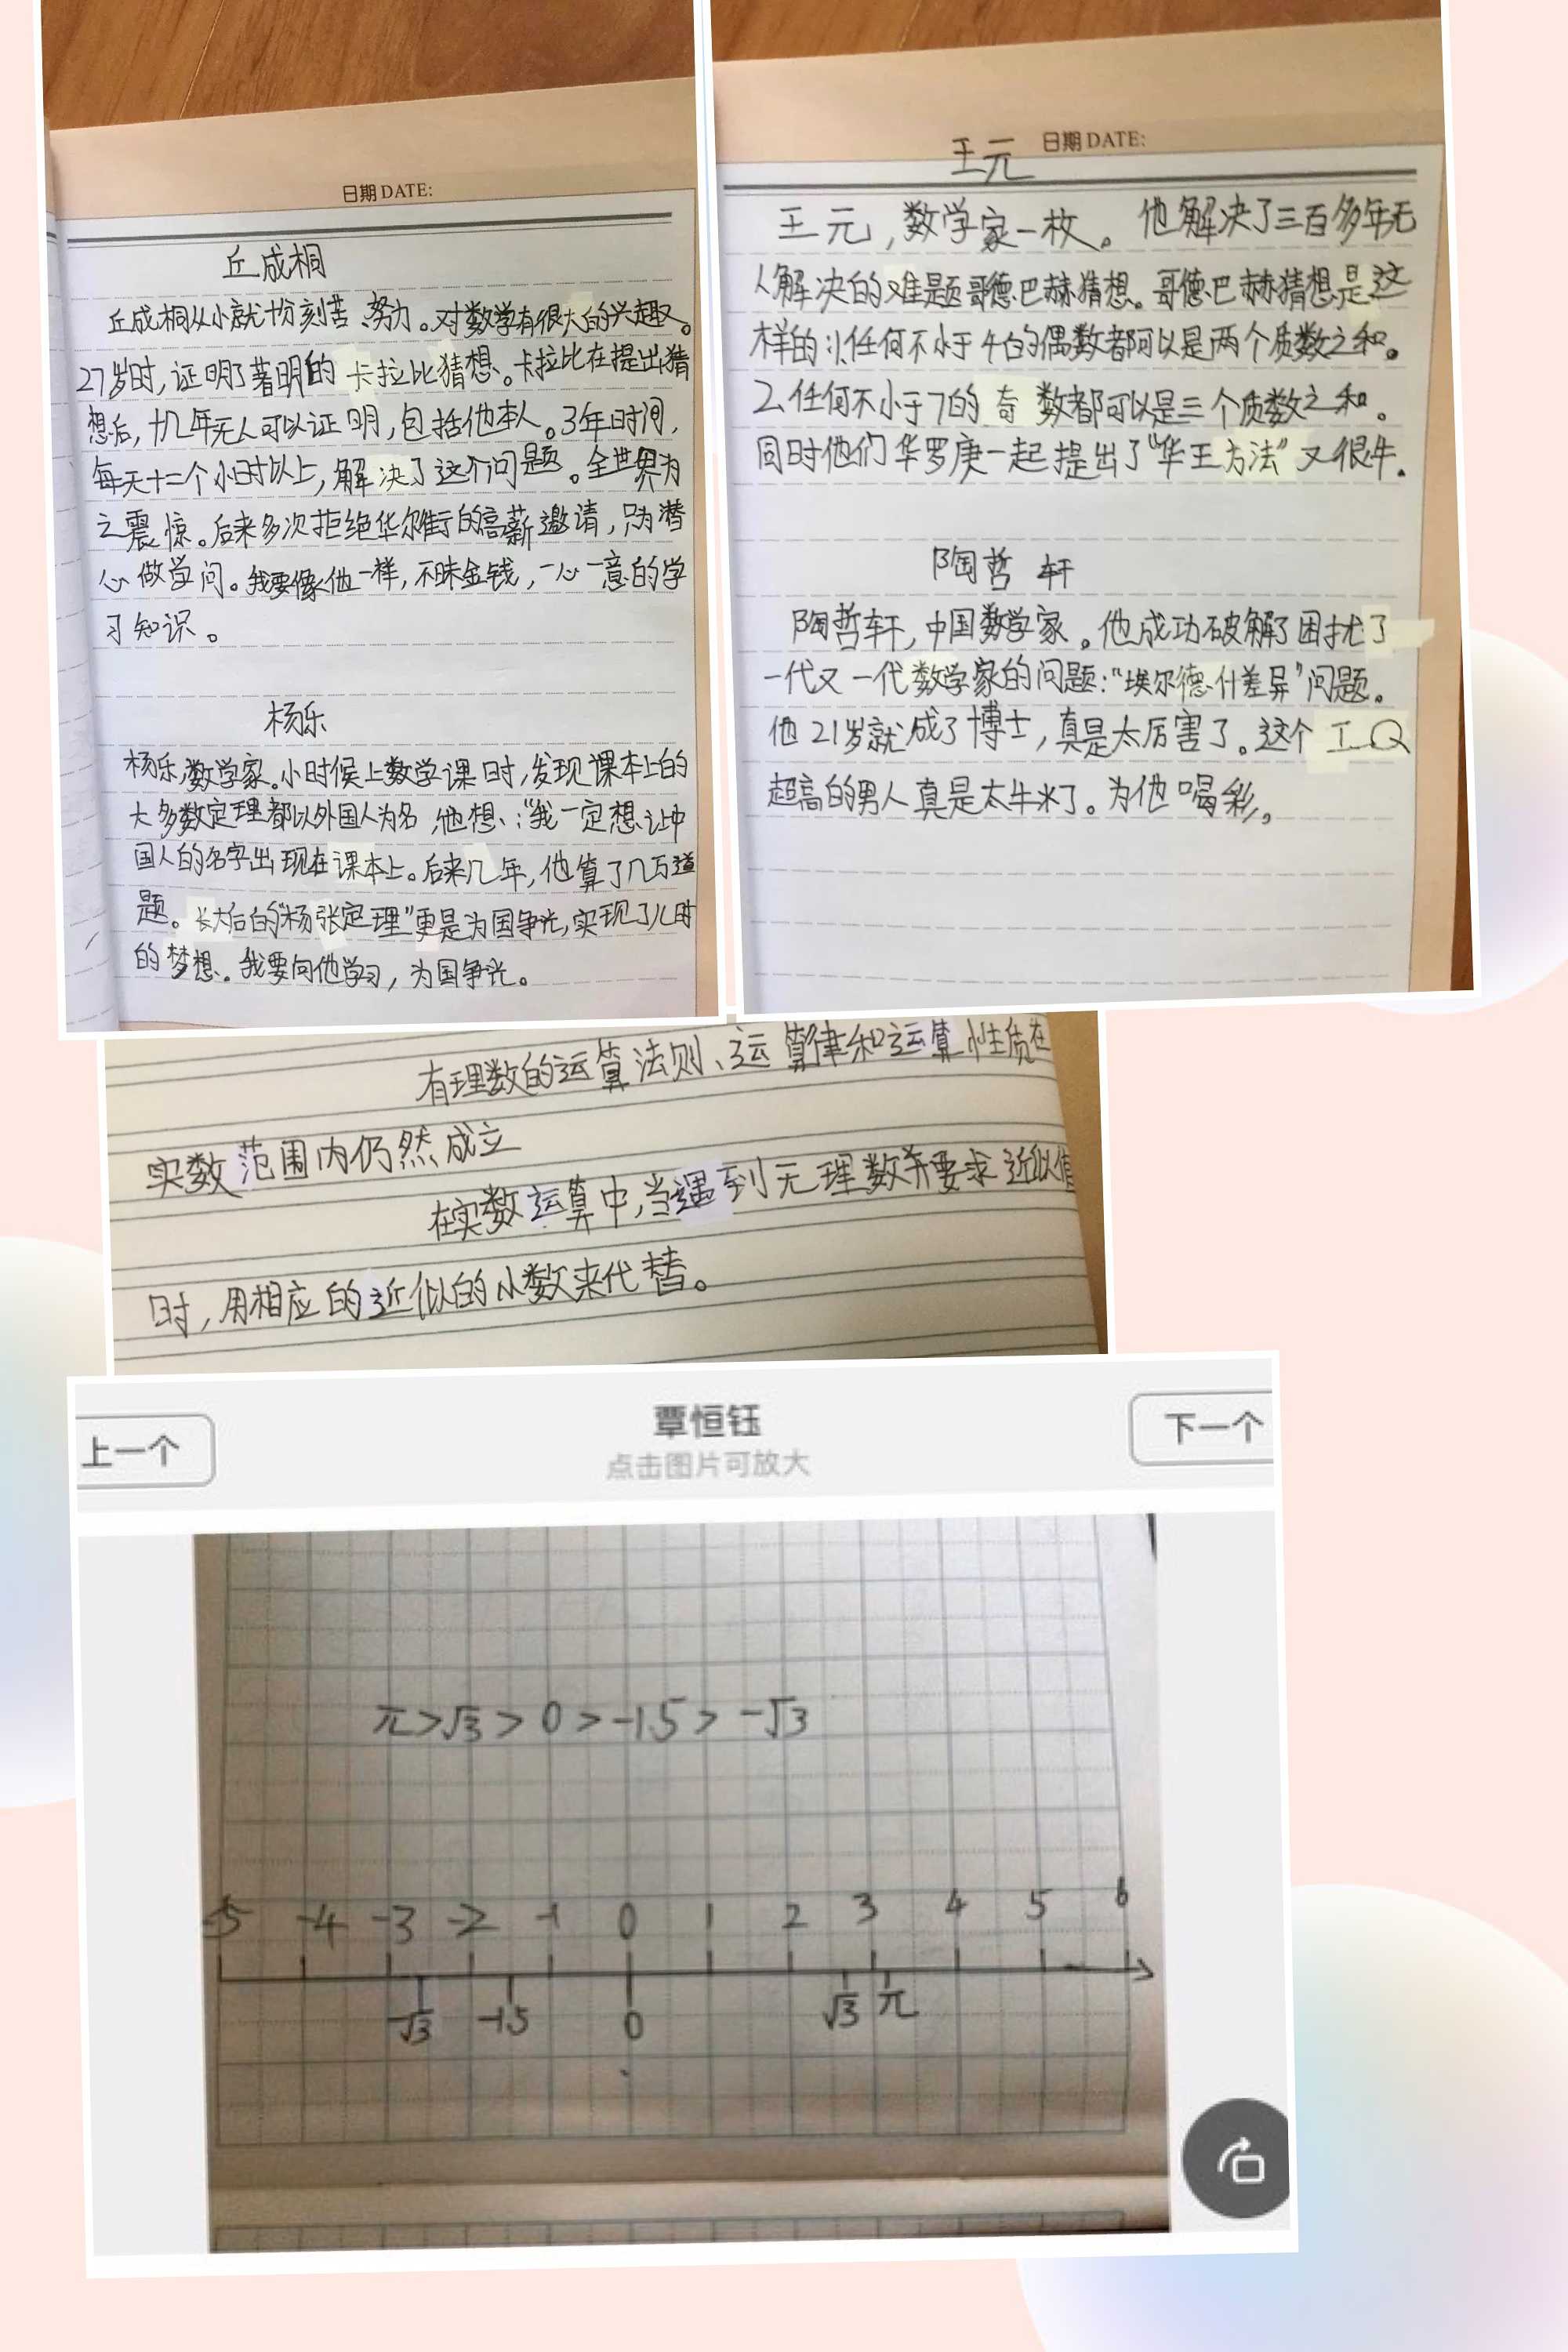 日期 DATE:
丘成桐
丘成桐从小就十份刻苦、努力。对数学有很大的兴趣。
27岁时,证明了著明的卡拉比猜想。卡拉比在提出猜
想后,十几年无人可以证明,包括他本人。3年时间,
每天十二个小时以上,解决了这个问题。全世界为
之震惊。后来多次拒绝华尔街的高薪邀请,只为潜
心做学问。我要像他一样,不昧金钱,一心一意的学
习知识。
杨乐
杨乐,数学家。小时候上数学课时,发现课本上的
大多数定理都以外国人为名,他想:“我一定想让中
国人的名字出现在课本上。后来几年,他算了几万道
题。长大后的“杨张定理”更是为国争光,实现了儿时
的梦想。我要向他学习,为国争光。
王元 日期 DATE:
王元,数学家一枚。他解决了三百多年无
人解决的难题哥德巴赫猜想。哥德巴赫猜想是这
样的:1.任何不小于4的偶数都可以是两个质数之和。
2.任何不小于7的奇数都可以是三个质数之和。
同时他们华罗庚一起提出了“华王方法”又很牛.
陶哲轩
陶哲轩,中国数学家。他成功破解了困扰了
一代又一代数学家的问题:“埃尔德什差异”问题。
他21岁就成了博士,真是太厉害了。这个IQ
超高的男人真是太牛了。为他喝彩。
有理数的运算法则、运算律和运算性质在
实数范围内仍然成立
在实数运算中,当遇到无理数并要求近似值
时,用相应的近似的小数来代替。
上一个 覃恒钰 下一个
点击图片可放大
π>√3>0>-1.5>-√3
-5 -4 -3 -2 -1 0 1 2 3 4 5 6
-√3 -1.5 0 √3 π